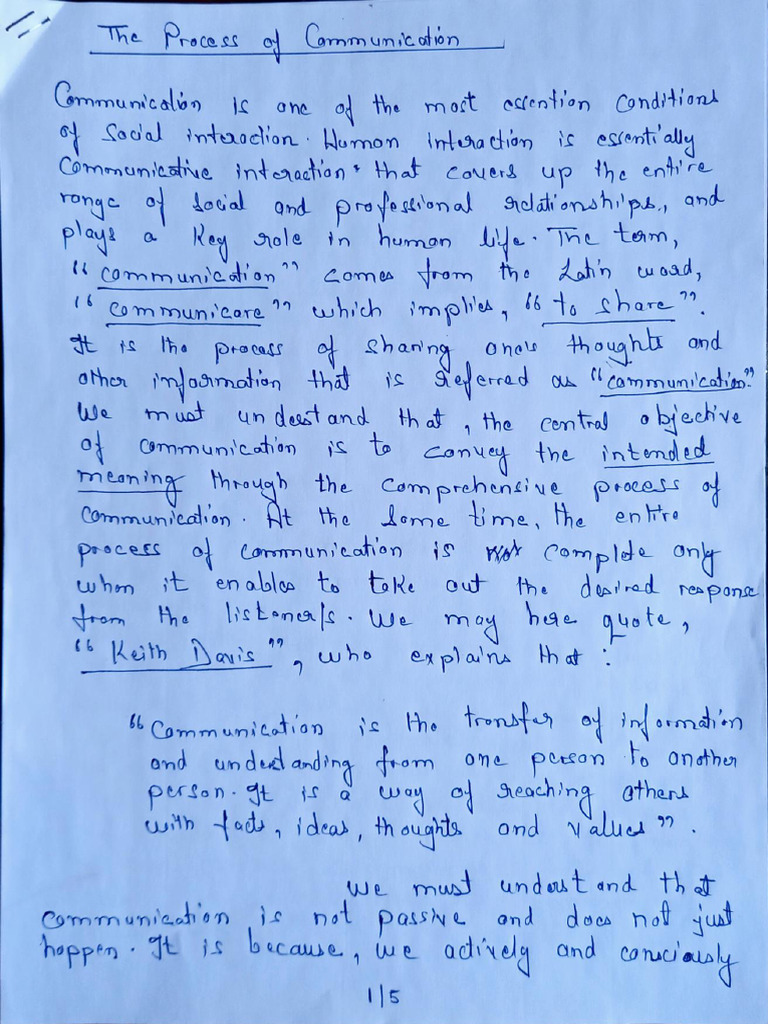 The Process of Communication
Communication is one of the most essention conditions
of social interaction. Human interaction is essentially
communicative interaction that covers up the entire
range of social and professional relationships, and
plays a key role in human life. The term,
"communication" comes from the Latin word,
"communicare" which implies, "to share".
It is the process of sharing one's thoughts and
other information that is referred as "communication."
We must understand that, the central objective
of communication is to convey the intended
meaning through the comprehensive process of
communication. At the same time, the entire
process of communication is complete only
when it enables to take out the desired response
from the listener/s. We may here quote,
"Keith Davis", who explains that:
"Communication is the transfer of information
and understanding from one person to another
person. It is a way of reaching others
with facts, ideas, thoughts and values".
We must understand that
communication is not passive and does not just
happen. It is because, we actively and consciously
1/5